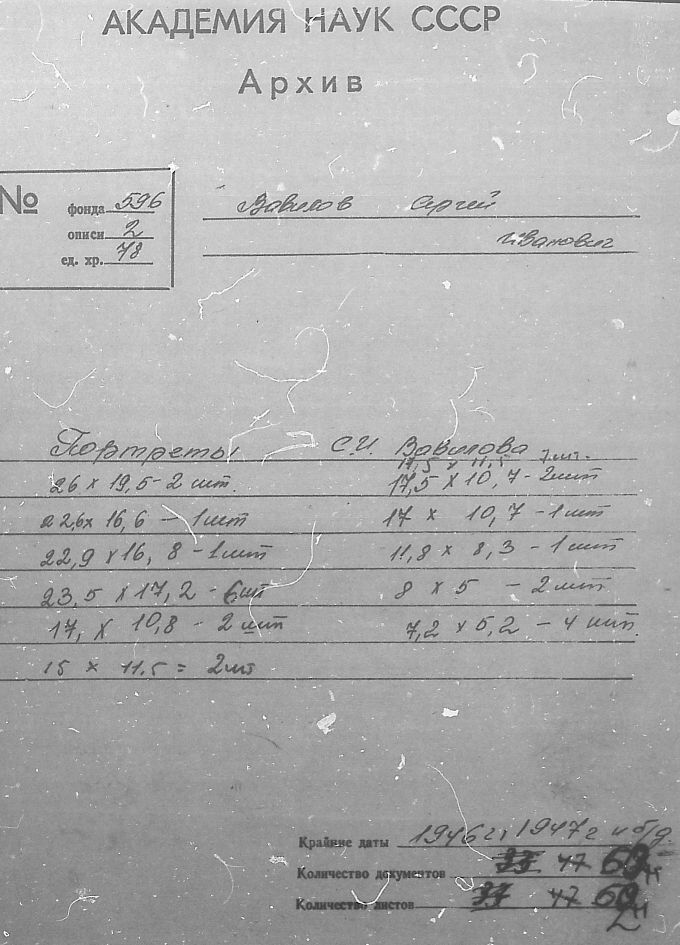 АКАДЕМИЯ НАУК СССР
Архив
№ фонда 596
описи 2
ед. хр. 78
Вавилов Сергей
Иванович
Портреты С.И. Вавилова
17,5 х 11,5
26 х 19,5 - 2 шт. 17,5 х 10,7 - 2 шт
22,6 х 16,6 - 1 шт 17 х 10,7 - 1 шт
22,9 х 16,8 - 1 шт 11,8 х 8,3 - 1 шт
23,5 х 17,2 - 6 шт 8 х 5 - 2 шт
17, х 10,8 - 2 шт 7,2 х 5,2 - 4 шт.
15 х 11.5 = 2 шт
Крайние даты 1946 г, 1947 г и б/д.
Количество документов 37 47
Количество листов 37 47